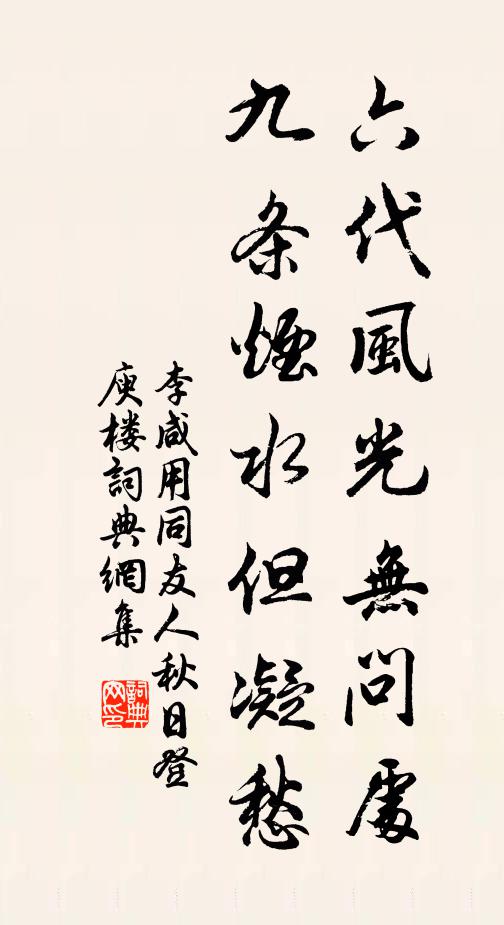 六代風光無問處
九条煙水但凝愁
李咸用同友人秋日登
庾楼詞典網集
詞典
网印